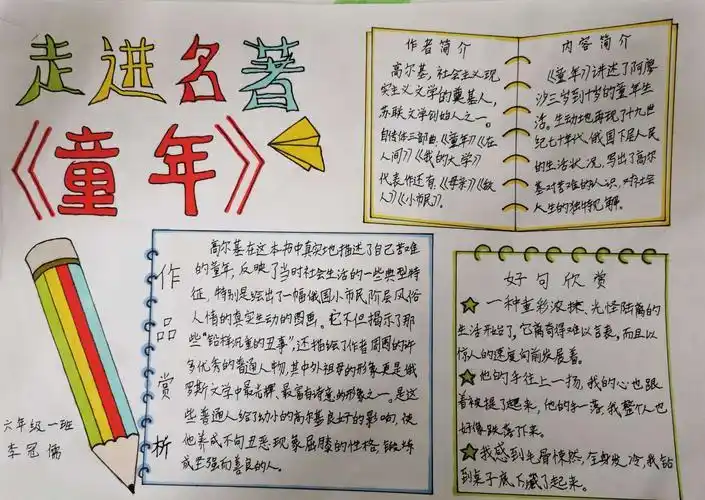 走进名著
《童年》
作者简介
高尔基,社会主义现
实主义文学的奠基人,
苏联文学创始人之一。
自传体三部曲:《童年》《在
人间》《我的大学》
代表作还有:《母亲》《敌
人》《小市民》。
内容简介
《童年》讲述了阿廖
沙三岁到十岁的童年生
活。生动地再现了十九世
纪七八十年代,俄国下层人民
的生活状况,写出了高尔
基对苦难的认识,对社会
人生的独特见解。
作品赏析
高尔基在这本书中真实地描述了自己苦难
的童年,反映了当时社会生活的一些典型特
征,特别是绘出了一幅俄国小市民阶层风俗
人情的真实生动的图画。它不但揭示了那
些"铅样沉重的丑事",还描绘了作者周围的许
多优秀的普通人物,其中外祖母的形象更是俄
罗斯文学中最光辉、最富有诗意的形象之一。是这
些普通人给了幼小的高尔基良好的影响,使
他养成不向丑恶现象屈膝的性格,锻炼
成坚强而善良的人。
好句欣赏
一种重彩浓抹、光怪陆离的
生活开始了,它离奇得难以言表,而且以
惊人的速度向前发展着。
他的手往上一扬,我的心也跟
着被提了起来,他的手一落,我整个人也
好像跌落下来。
我感到头唇悚然,全身发冷,我钻
到桌子底下藏了起来。
六年级一班
李冠儒